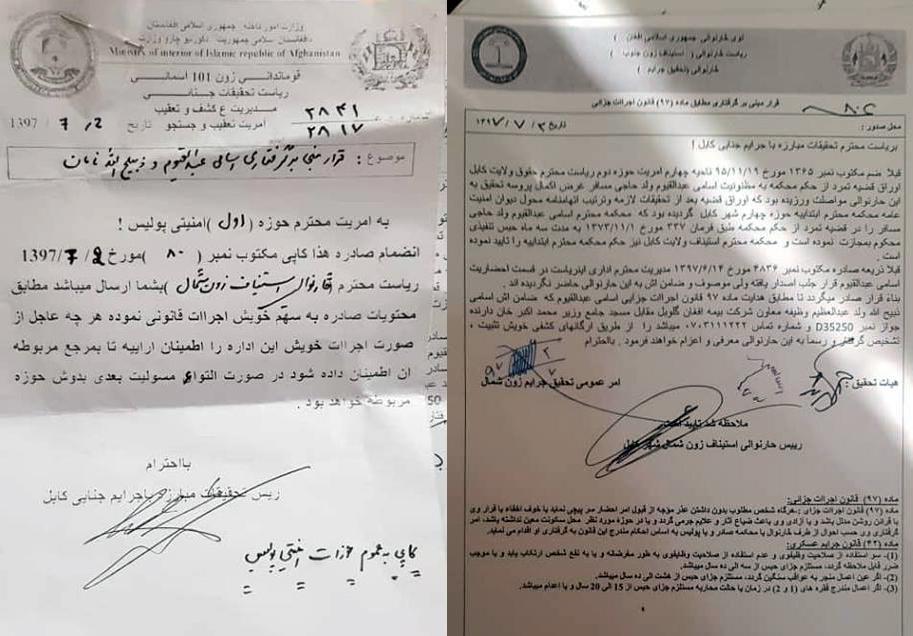 وزارت امور داخله جمهوری اسلامی افغانستان
دافغانستان اسلامی جمهوریت دکورنیو چارو وزارت
Ministry of interior of Islamic republic of Afghanistan
قوماندانی زون 101 آسمائی
ریاست تحقیقات جنایی
مدیریت ع کشف و تعقیب
۲۸۴۱
آمریت تعقیب و جستجو تاریخ 2/ 7 / 1397
۲۸۱۷
موضوع : قرار مبنی بر گرفتاری اسامی عبدالقیوم و ذبیح الله نامان
به آمریت محترم حوزه ( اول ) امنیتی پولیس !
انضمام صادره هذا کاپی مکتوب نمبر ( ۸۰ ) مورخ 2/7/1397
ریاست محترم ( څارنوالی استیناف زون شمال ) بشما ارسال میباشد مطابق
محتویات صادره به سهم خویش اجراات قانونی نموده هر چه عاجل از
صورت اجراات خویش این اداره را اطمینان ارایه تا بمرجع مربوطه
ان اطمینان داده شود در صورت التوای مسولیت بعدی بدوش حوزه
مربوطه خواهد بود .
بااحترام
ریس تحقیقات مبارزه باجرایم جنایی کابل
کاپی به عموم حوزات امنیتی پولیس
لوی څارنوالی جمهوری اسلامی افغان )
ریاست څارنوالی ( استیناف زون جنوب )
څارنوالی (تحقیق جرایم )
قرار مبنی بر گرفتاری مطابق ماده (۹۷) قانون اجراات جزائی ۸۰
محل صدور : تاریخ ۲ / ۷ / ۱۳۹۷
بریاست محترم تحقیقات مبارزه با جرایم جنایی کابل !
قبلا ضم مکتوب نمبر ۱۳۶۵ مورخ ۹۵/۱۱/۱۹ ناحیه چهارم آمریت حوزه دوم ریاست محترم حقوق ولایت کابل
اوراق قضیه تمرد از حکم محکمه به مظنونیت اسامی عبدالقیوم ولد حاجی مسافر غرض اکمال پروسه تحقیق به
این څارنوالی مواصلت ورزیده بود که اوراق قضیه بعد از تحقیقات لازمه وترتیب اتهامنامه محول دیوان امنیت
عامه محکمه محترم ابتداییه حوزه چهارم شهر کابل گردیده بود که محکمه محترم اسامی عبدالقیوم ولد حاجی
مسافر را در قضیه تمرد از حکم محکمه طبق فرمان ۳۳۷ مورخ ۱۳۷۳/۱۱/۱ به مدت سه ماه حبس تنفیذی
محکوم بمجازات نموده است و محکمه محترم استیناف ولایت کابل نیز حکم محکمه محترم ابتداییه را تایید نموده
است .
قبلا ذریعه صادره مکتوب نمبر ۴۸۳۶ مورخ ۱۳۹۷/۶/۱۴ مدیریت محترم اداری اینریاست در قسمت احضاریت
اسامی عبدالقیوم قرار جلب اصدار یافته ولی موصوف و ضامن اش به این څارنوالی حاضر نگردیده اند .
بناءً قرار صادر میگردد تا مطابق هدایت ماده ۹۷ قانون اجراات جزایی اسامی عبدالقیوم که ضامن اش اسامی
ذبیح الله ولد عبدالعظیم وظیفه معاون شرکت بیمه افغان گلوبل مقابل مسجد جامع وزیر محمد اکبر خان دارنده
جواز نمبر D35250 و شماره تماس ۰۷۰۳۱۱۱۲۲۲ میباشد را از طریق ارگانهای کشفی خویش تثبیت ،
تشخیص گرفتار و رسماً به این څارنوالی معرفی و اعزام خواهند فرمود . بااحترام
هیات تحقیق :
امر عمومی تحقیق جرایم زون شمال
ملاحظه شد تایید است
رییس څارنوالی استیناف زون شمال شهر کابل
ماده (۹۷) قانون اجراات جزائی:
ماده (۹۷) قانون اجراات جزای :هرگاه شخص مطلوب بدون داشتن عذر مؤجه از قبول امر احضار سر پیچی نماید یا خوف اخفاء یا فرار وی
با قراین روشن مدلل باشد و یا آزادی وی باعث ضیاع آثار و علایم جرمی گردد و یا در حوزه مورد نظر محل سکونت معین نداشته باشد، امر
گرفتاری وی حسب احوال از طرف څارنوال یا محکمه صادر و یا پولیس به اساس احکام مندرج این قانون به گرفتاری او اقدام می نماید.
ماده (۴۲) قانون جرایم عسکری:
(1)- سو استفاده از صلاحیت وظیفوی و عدم استفاده از صلاحیت وظایفوی به طور مغرضانه و یا به نفع شخص ارتکاب یابد و یا موجب
ضرر قابل ملاحظه گردد، مستلزم جزای حبس از سه الی ده سال میباشد.
(2)- اگر عین اعمال منجر به عواقب سنگین گردد، مستلزم جزای حبس از هشت الی ده سال میباشد.
(3)- اگر اعمال مندرج فقره های (1 و 2) در زمان یا حالت محاربه مستلزم جزای حبس از 15 الی 20 سال و یا اعدام میباشد.